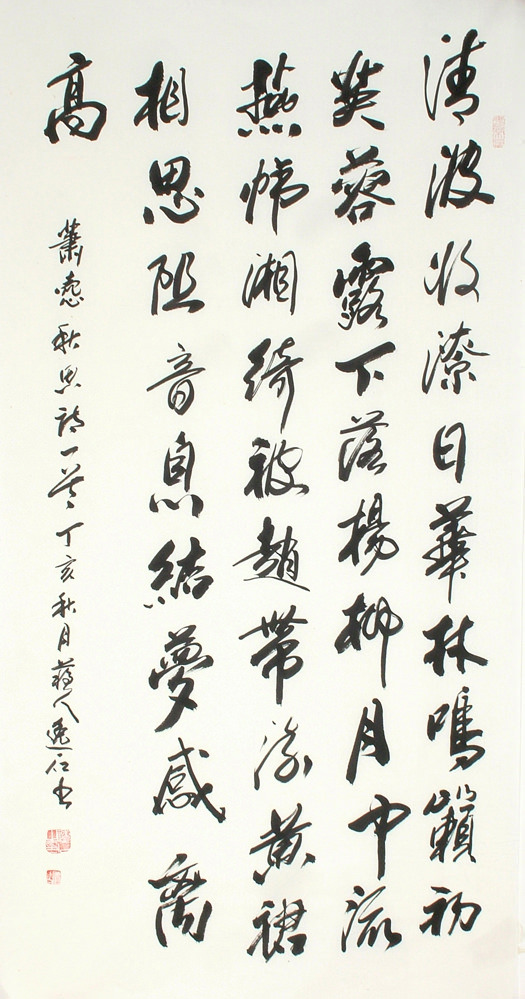 清波收潦日華林鳴籟初
芙蓉露下落楊柳月中流
燕幃湘綺被趙帶流黃裙
相思阻音息結夢感离
高
蕭愨秋思詩一首丁亥秋月蘇人逸石書